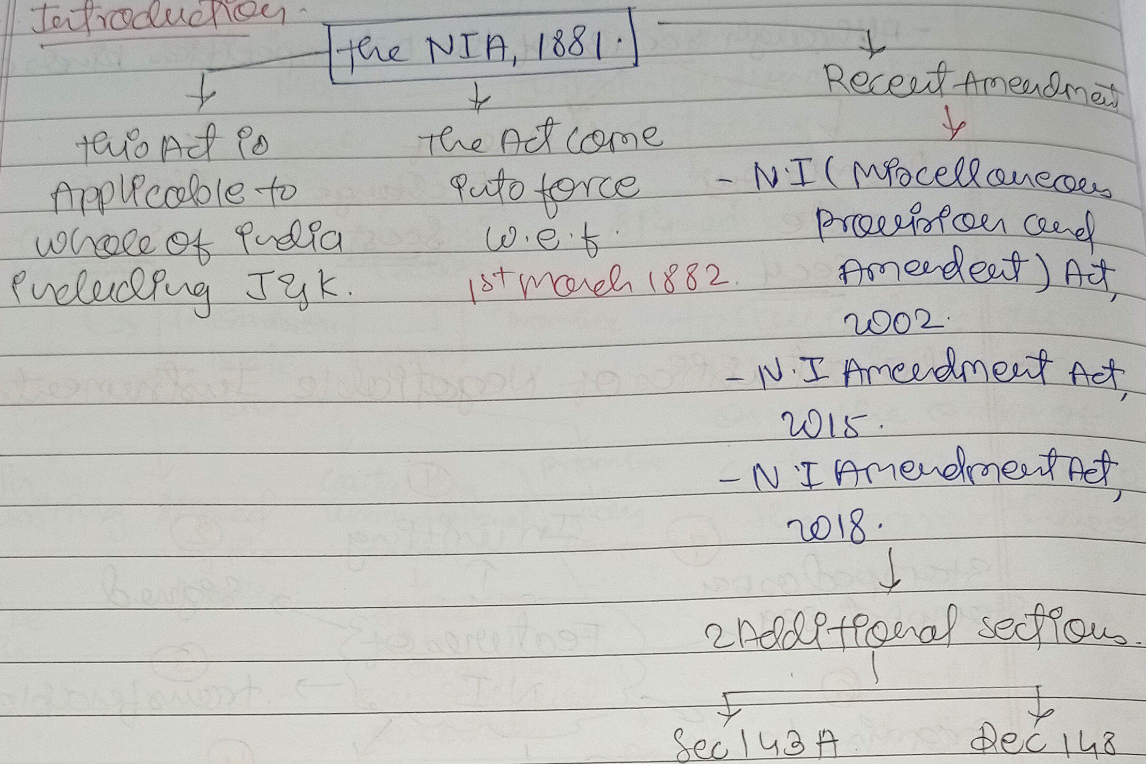 Introduction.
The NIA, 1881.
this Act is
Applicable to
whole of India
including J&K.
The Act come
into force
w.e.f.
1st March 1882.
Recent Amendment
- N.I (Miscellaneous
provision and
Amendent) Act,
2002.
- N.I Amendment Act,
2015.
- N.I Amendment Act,
2018.
2 Additional sections.
Sec 143A
Sec 148